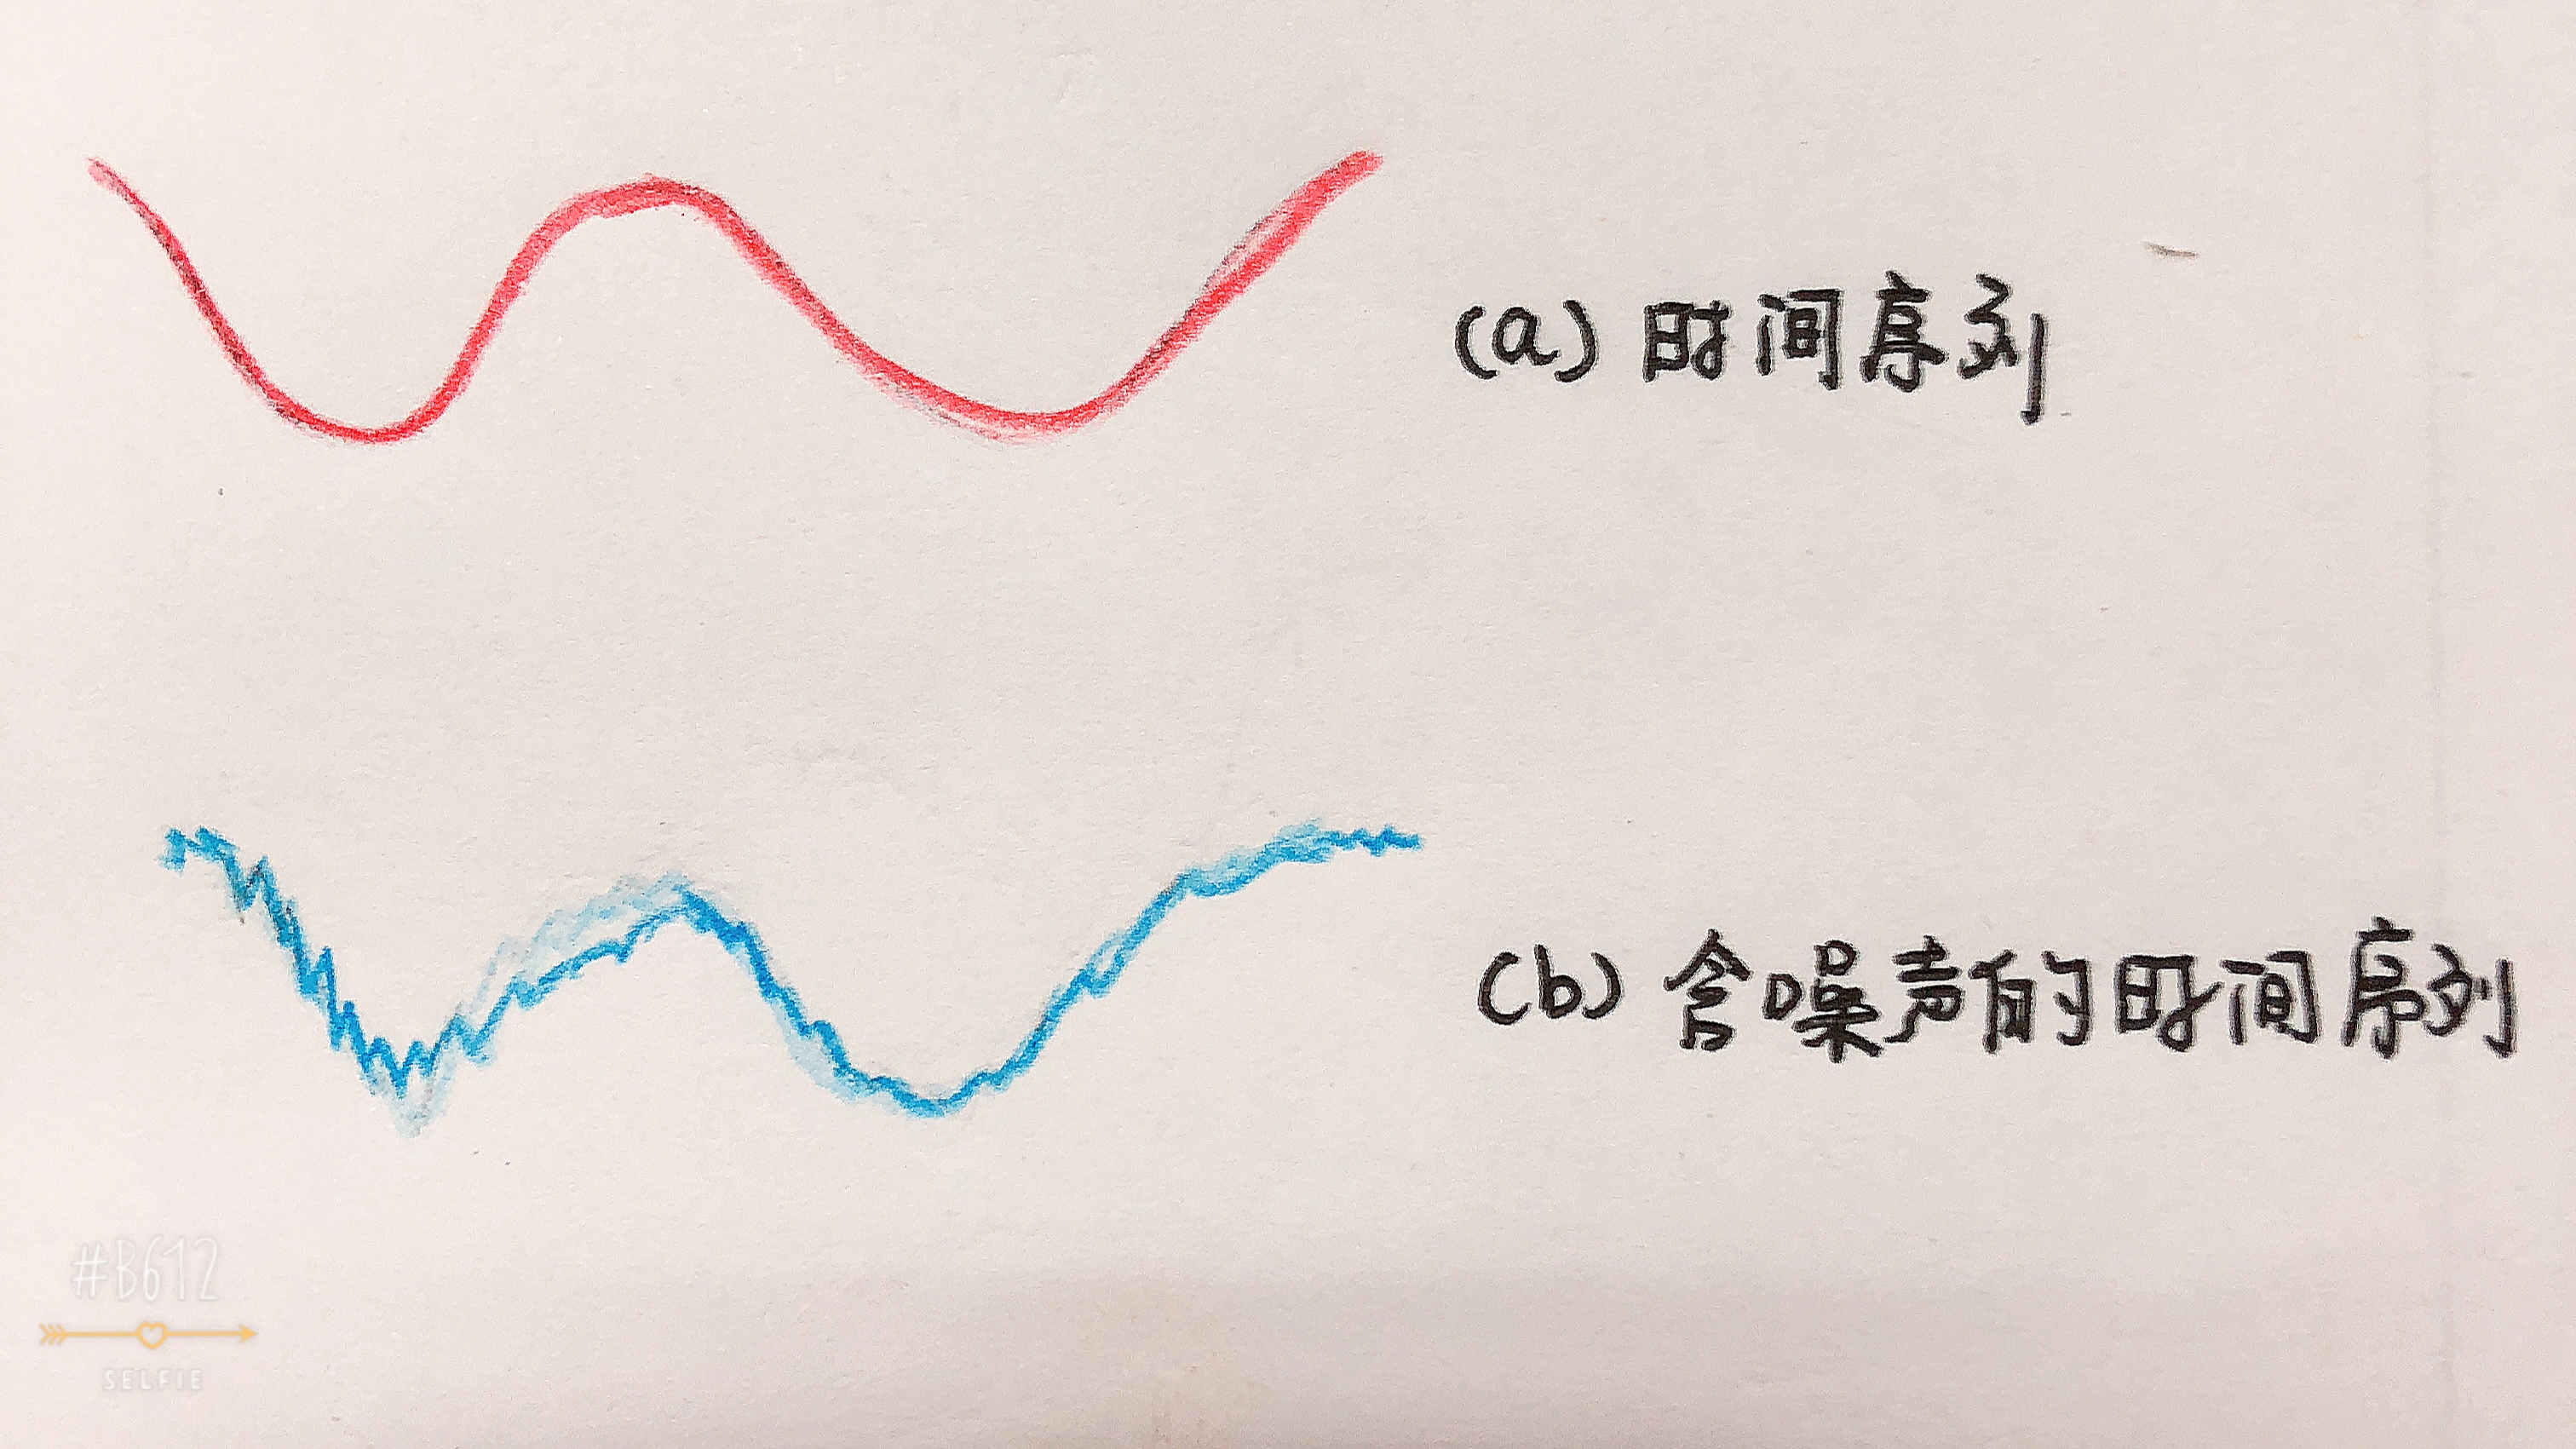 (a) 时间序列
(b) 含噪声的时间序列
#B612
SELFIE